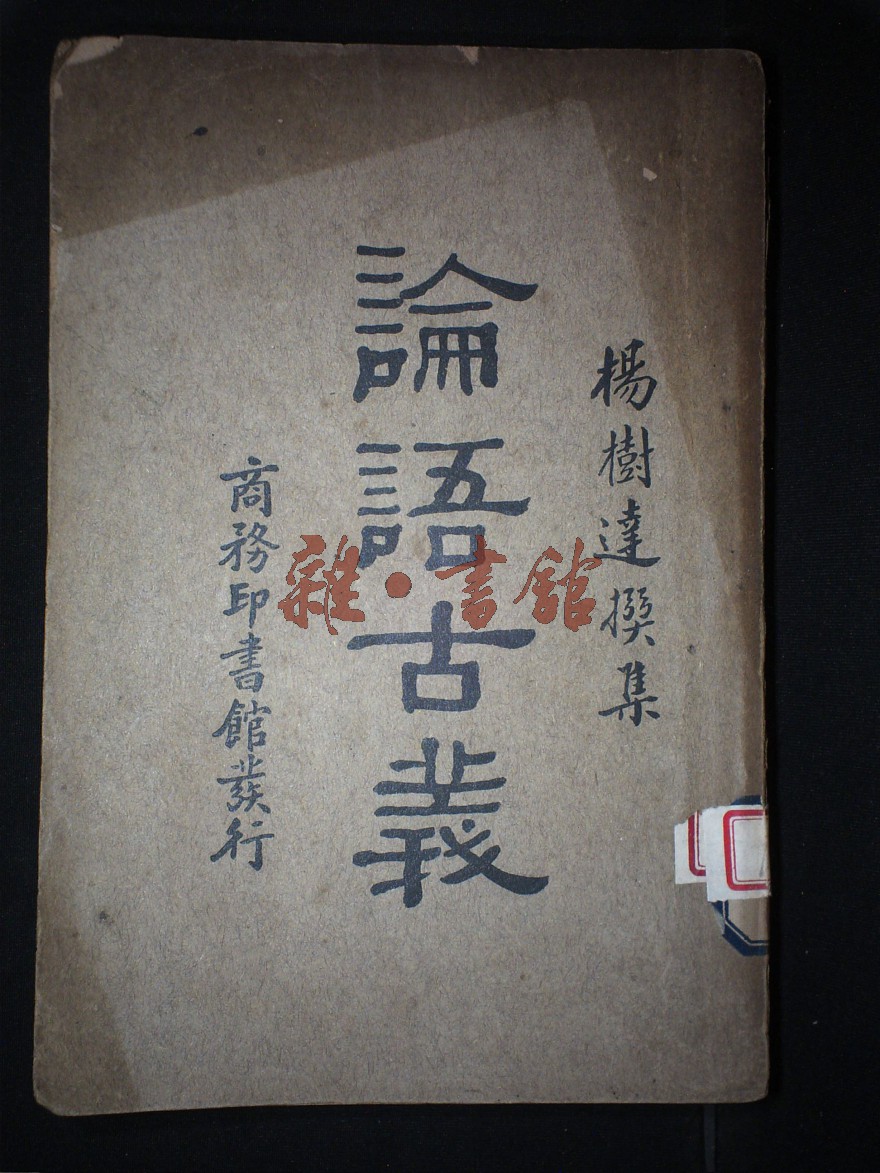 楊樹達撰集
論語古義
商務印書館發行
雜·書館